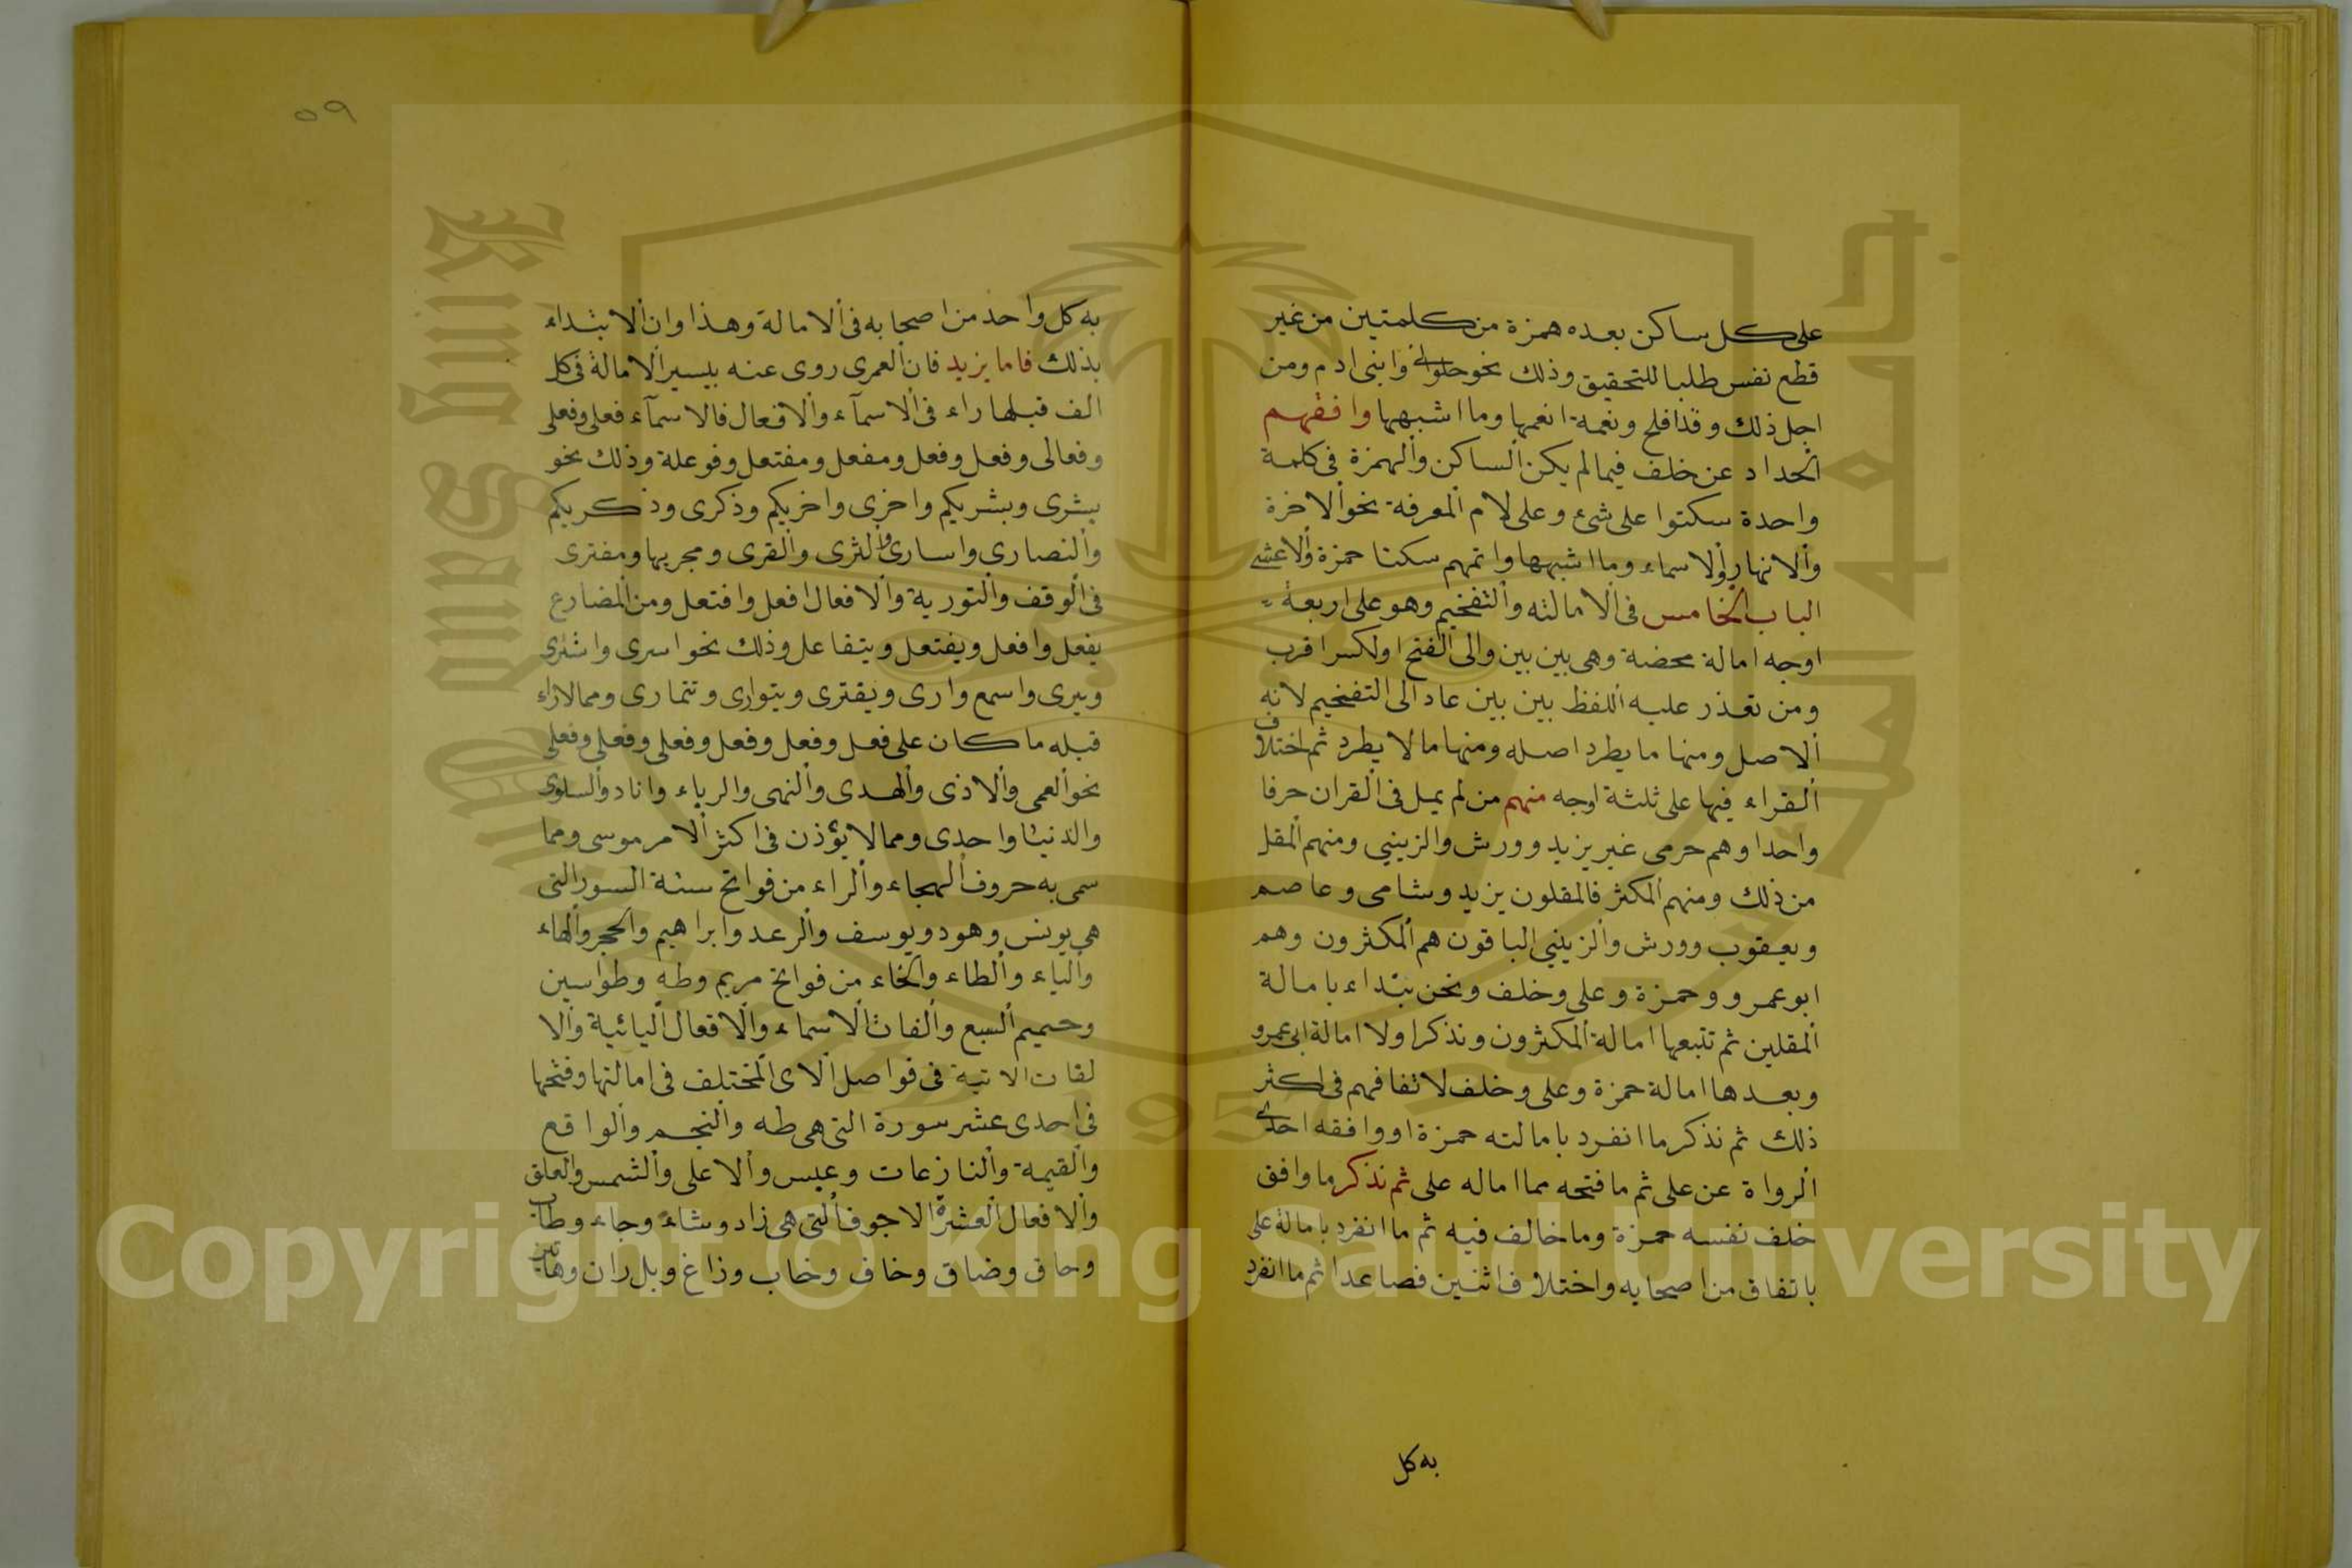 على كل ساكن بعده همزة من كلمتين من غير
قطع نفس طلبا للتحقيق وذلك نحو خلوا الى وابنى ادم ومن
اجل ذلك وقد افلح ونعمة انعمها وما اشبهها وافقهم
الحداد عن خلف فيما لم يكن الساكن والهمزة فى كلمة
واحدة سكتوا على شئ وعلى لام المعرفة نحو الاخرة
والانهار والاسماء وما اشبهها واتمهم سكتا حمزة والاعشى
الباب الخامس فى الامالته والتفخيم وهو على اربعة
اوجه امالة محضة وهى بين بين والى الفتح اولكسر اقرب
ومن تعذر عليه اللفظ بين بين عاد الى التفخيم لانه
الاصل ومنها ما يطرد اصله ومنها ما لا يطرد ثم اختلاف
القراء فيها على ثلثة اوجه منهم من لم يمل فى القران حرفا
واحدا وهم حرمى غير يزيد وورش والزينبي ومنهم المقل
من ذلك ومنهم المكثر فالمقلون يزيد وشامى وعاصم
ويعقوب وورش والزينبي الباقون هم المكثرون وهم
ابو عمرو وحمزة وعلى وخلف ونحن نبتداء بامالة
المقلين ثم تتبعها امالة المكثرون ونذكر اولا امالة ابى عمرو
وبعدها امالة حمزة وعلى وخلف لاتفاقهم فى اكثر
ذلك ثم نذكر ما انفرد بامالته حمزة او وافقه احدى
الرواة عن على ثم ما فتحه مما اماله على ثم نذكر ما وافق
خلف نفسه حمزة وما خالف فيه ثم ما انفرد بامالة على
باتفاق من اصحابه واختلاف اثنين فصاعدا ثم ما انفرد
به كل
٥٩
به كل واحد من اصحابه فى الامالة وهذا وان الابتداء
بذلك فاما يزيد فان العمرى روى عنه بيسير الامالة فى كل
الف قبلها راء فى الاسمآء والافعال فالاسمآء فعلى وفعلى
وفعالى وفعل وفعل ومفعل ومفتعل وفوعلة وذلك نحو
بشرى وبشريكم واخرى واخريكم وذكرى وذكريكم
والنصارى واسارى والثرى والقرى ومجريها ومفترى
فى الوقف والتورية والافعال افعل وافتعل ومن المضارع
يفعل وافعل ويفتعل ويتفاعل وذلك نحو اسرى واشترى
ويرى واسمع وارى ويفترى ويتوارى وتتمارى ومما لاراء
قبله ما كان على فعل وفعل وفعل وفعلى وفعلى وفعلى
نحو العمى والاذى والهدى والنهى والرياء واناد والسلوى
والدنيا واحدى ومما لا يؤذن فى اكثر الامر موسى ومما
سمى به حروف الهجاء والراء من فواتح ستة السور التى
هى يونس وهود ويوسف والرعد وابراهيم والحجر والهاء
والياء والطاء والخاء من فواتح مريم وطه وطواسين
وحميم السبع والفات الاسماء والافعال اليائية والا
لقات الاتية فى فواصل الاى المختلف فى امالتها وفتحها
فى احدى عشر سورة التى هى طه والنجم والواقع
والقيمة والنازعات وعبس والاعلى والشمس والعلق
والافعال العشرة الاجوف التى هى زاد وشاء وجاء وطاب
وحاق وضاق وخاف وخاب وزاغ وبل ران
جامعة الملك سعود
King Saud University
1957
Copyright © King Saud University